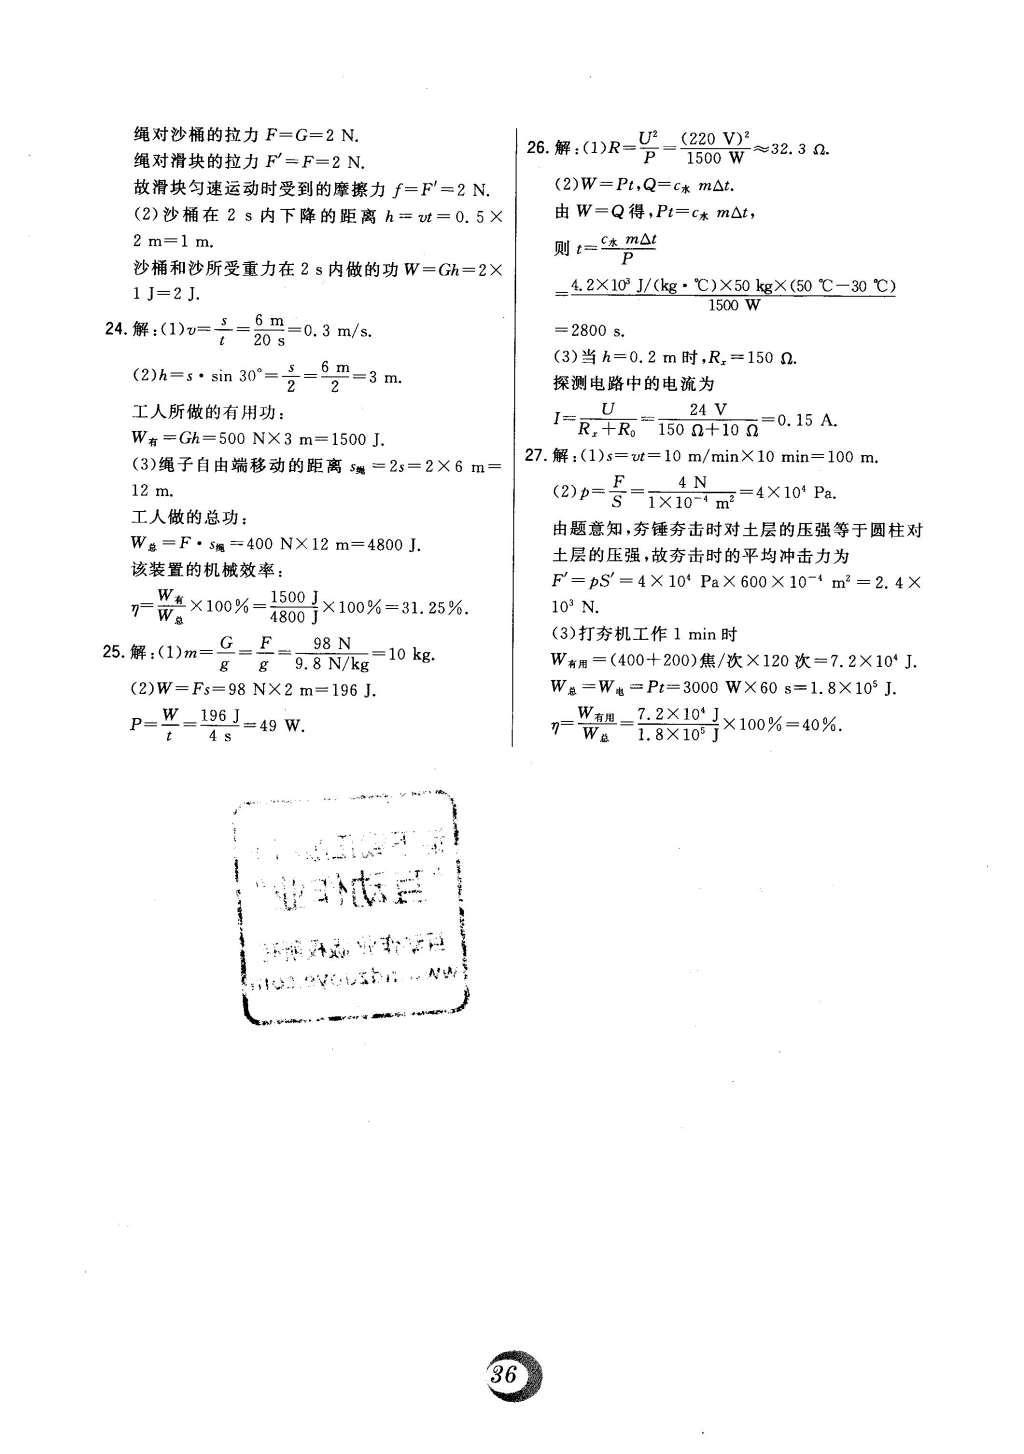 绳对沙桶的拉力 F=G=2 N.
绳对滑块的拉力 F′=F=2 N.
故滑块匀速运动时受到的摩擦力 f=F′=2 N.
(2)沙桶在 2 s 内下降的距离 h=vt=0.5×
2 m=1 m.
沙桶和沙所受重力在 2 s 内做的功 W=Gh=2×
1 J=2 J.
24.解:(1)v=s/t=6 m/20 s=0.3 m/s.
(2)h=s·sin 30°=s/2=6 m/2=3 m.
工人所做的有用功:
W有=Gh=500 N×3 m=1500 J.
(3)绳子自由端移动的距离 s绳=2s=2×6 m=
12 m.
工人做的总功:
W总=F·s绳=400 N×12 m=4800 J.
该装置的机械效率:
η=W有/W总×100%=1500 J/4800 J×100%=31.25%.
25.解:(1)m=G/g=F/g=98 N/9.8 N/kg=10 kg.
(2)W=Fs=98 N×2 m=196 J.
P=W/t=196 J/4 s=49 W.
26.解:(1)R=U²/P=(220 V)²/1500 W≈32.3 Ω.
(2)W=Pt,Q=c水 mΔt.
由 W=Q 得,Pt=c水 mΔt,
则 t=c水 mΔt/P
=4.2×10³ J/(kg·℃)×50 kg×(50 ℃-30 ℃)/1500 W
=2800 s.
(3)当 h=0.2 m 时,Rx=150 Ω.
探测电路中的电流为
I=U/(Rx+R₀)=24 V/(150 Ω+10 Ω)=0.15 A.
27.解:(1)s=vt=10 m/min×10 min=100 m.
(2)p=F/S=4 N/1×10⁻⁴ m²=4×10⁴ Pa.
由题意知,夯锤夯击时对土层的压强等于圆柱对
土层的压强,故夯击时的平均冲击力为
F′=pS′=4×10⁴ Pa×600×10⁻⁴ m²=2.4×
10³ N.
(3)打夯机工作 1 min 时
W有用=(400+200)焦/次×120 次=7.2×10⁴ J.
W总=W电=Pt=3000 W×60 s=1.8×10⁵ J.
η=W有用/W总=7.2×10⁴ J/1.8×10⁵ J×100%=40%.
36